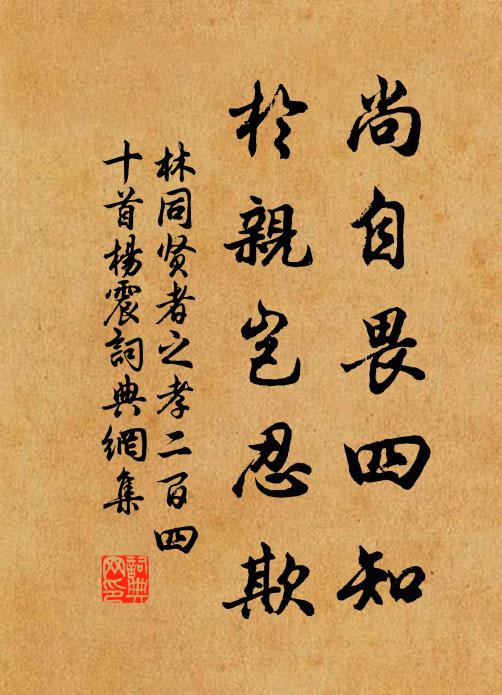 尚自畏四知
於親豈忍欺
林同贤者之孝二百四
十首楊震詞典網集
詞典
网印